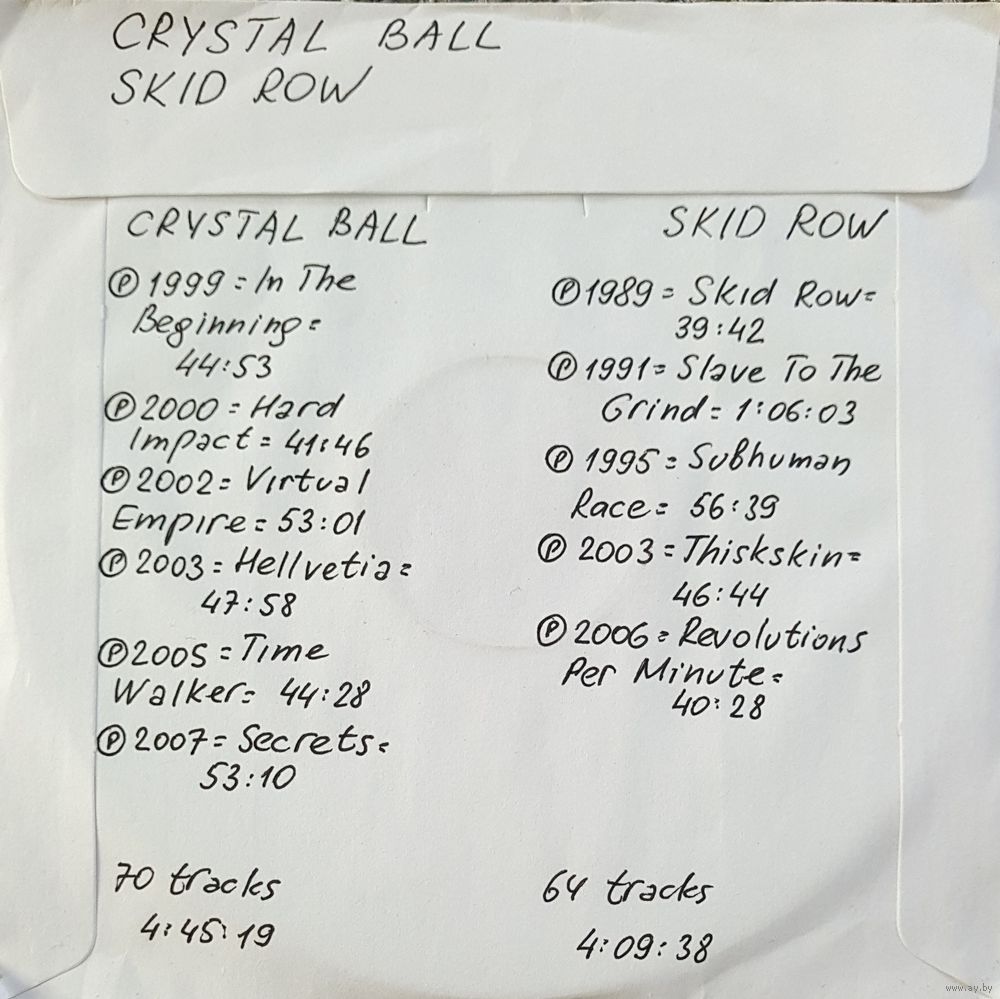 CRYSTAL BALL
SKID ROW
CRYSTAL BALL
Ⓟ 1999 = In The
Beginning =
44:53
Ⓟ 2000 = Hard
Impact = 41:46
Ⓟ 2002 = Virtual
Empire = 53:01
Ⓟ 2003 = Hellvetia =
47:58
Ⓟ 2005 = Time
Walker = 44:28
Ⓟ 2007 = Secrets =
53:10
70 tracks
4:45:19
SKID ROW
Ⓟ 1989 = Skid Row =
39:42
Ⓟ 1991 = Slave To The
Grind = 1:06:03
Ⓟ 1995 = Subhuman
Race = 56:39
Ⓟ 2003 = Thiskskin =
46:44
Ⓟ 2006 = Revolutions
Per Minute =
40:28
64 tracks
4:09:38
www.ay.by